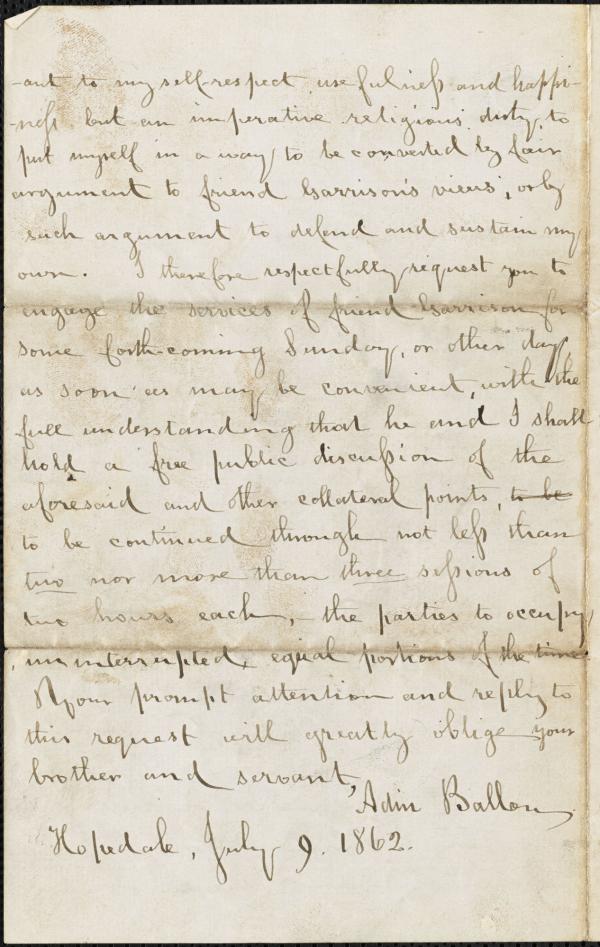 -ant to my self-respect usefulness and happi-
-ness but an imperative religious duty, to
put myself in a way to be converted by fair
argument to friend Garrison's views, or by
such argument to defend and sustain my
own. I therefore respectfully request you to
engage the services of friend Garrison for
some forth-coming Sunday, or other day,
as soon as may be convenient, with the
full understanding that he and I shall
hold a free public discussion of the
aforesaid and other collateral points, to be
to be continued through not less than
two nor more than three sessions of
two hours each,- the parties to occupy,
uninterrupted, equal portions of the time.
Your prompt attention and reply to
this request will greatly oblige your
brother and servant,
Adin Ballou
Hopedale, July 9. 1862.